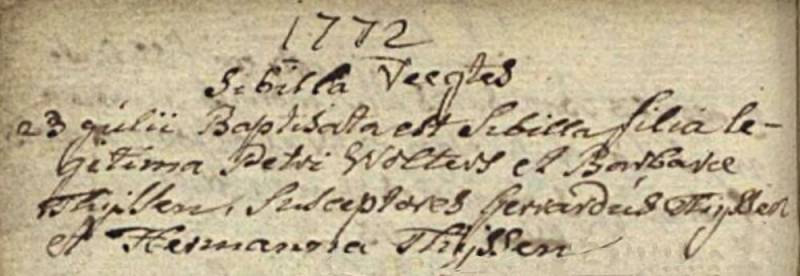 1772
Sibilla Veegtes
23 gulii Baptisata est Sibilla filia le-
gitima Petri Wolters et Barbare
Thijssen, Susceptores Gerrardus Thijssen
et Hermanna Thijssen